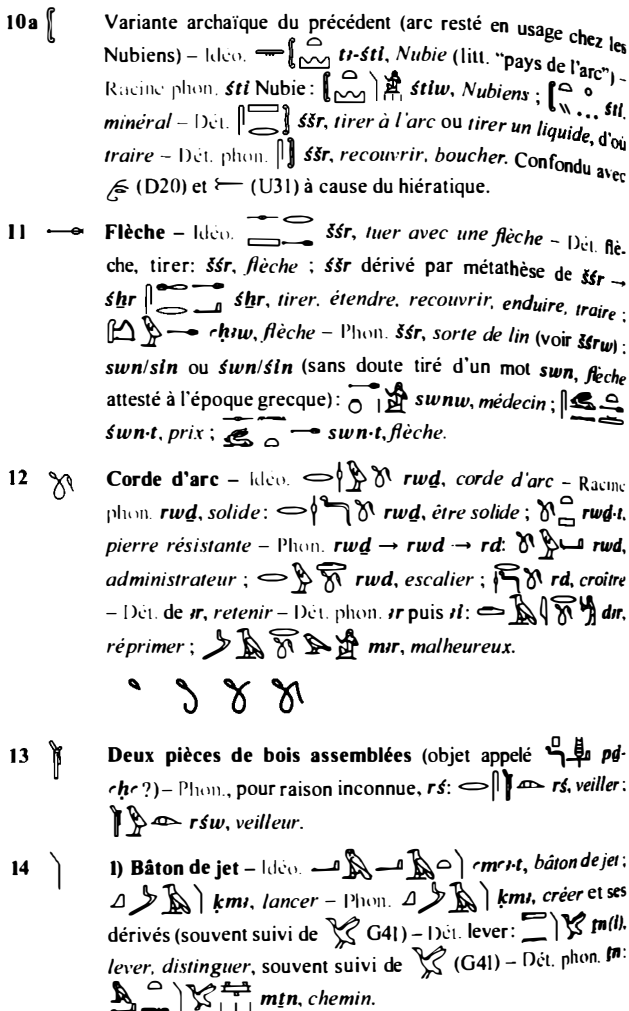 10a Variante archaïque du précédent (arc resté en usage chez les
Nubiens) – Idéo. tꜣ-śti, Nubie (litt. "pays de l'arc") –
Racine phon. śti Nubie: śtiw, Nubiens ; śti,
minéral – Dét. śšr, tirer à l'arc ou tirer un liquide, d'où
traire – Dét. phon. śšr, recouvrir, boucher. Confondu avec
(D20) et (U31) à cause du hiératique.
11 Flèche – Idéo. šśr, tuer avec une flèche – Dét. flè-
che, tirer: šśr, flèche ; śšr dérivé par métathèse de šśr →
śẖr śẖr, tirer, étendre, recouvrir, enduire, traire ;
ꜥḥꜣw, flèche – Phon. šśr, sorte de lin (voir šśrw) ;
swn/sin ou św​n/śin (sans doute tiré d'un mot swn, flèche
attesté à l'époque grecque): swnw, médecin ;
śwn·t, prix ; swn·t, flèche.
12 Corde d'arc – Idéo. rwḏ, corde d'arc – Racine
phon. rwḏ, solide: rwḏ, être solide ; rwḏ·t,
pierre résistante – Phon. rwḏ → rwd → rd: rwḏ,
administrateur ; rwd, escalier ; rd, croître
– Dét. de ꜣr, retenir – Dét. phon. ꜣr puis ꜣi: dꜣr,
réprimer ; mꜣr, malheureux.
13 Deux pièces de bois assemblées (objet appelé pḏ-
ꜥḥꜥ ?) – Phon., pour raison inconnue, rś: rś, veiller ;
rśw, veilleur.
14 1) Bâton de jet – Idéo. ꜥmꜥꜣ·t, bâton de jet ;
ḳmꜣ, lancer – Phon. ḳmꜣ, créer et ses
dérivés (souvent suivi de G41) – Dét. lever: ṯn(i),
lever, distinguer, souvent suivi de (G41) – Dét. phon. ṯn:
mṯn, chemin.